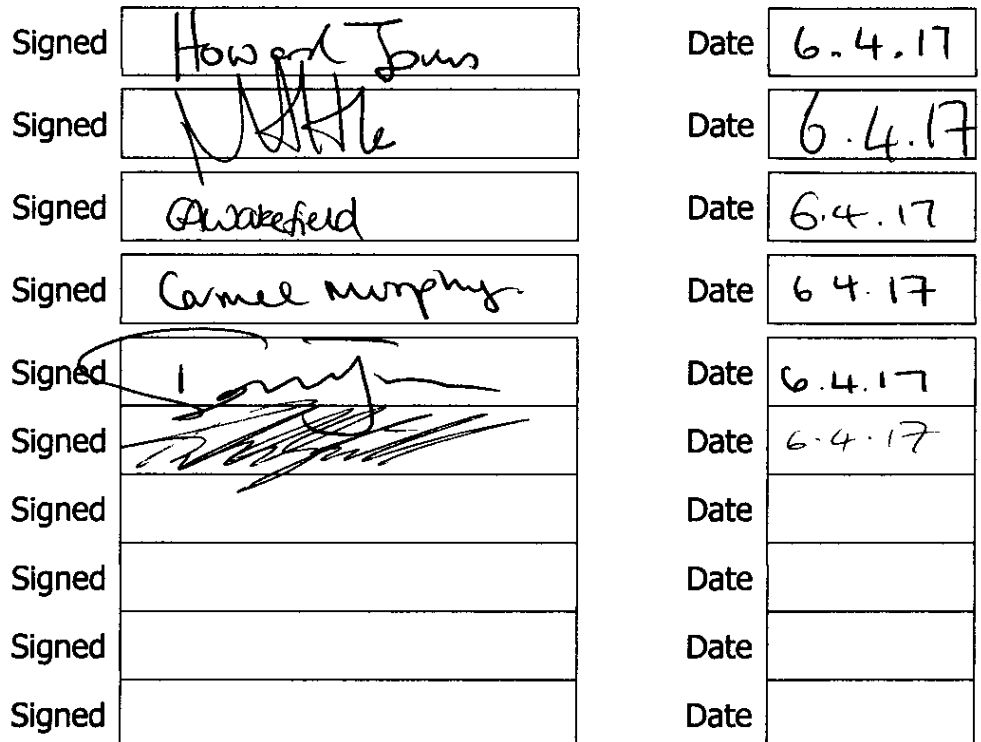 Signed Howard Jones Date 6.4.17
Signed Date 6.4.17
Signed GAWakefield Date 6.4.17
Signed Carmel Murphy Date 6 4.17
Signed Date 6.4.17
Signed Date 6.4.17
Signed Date
Signed Date
Signed Date
Signed Date